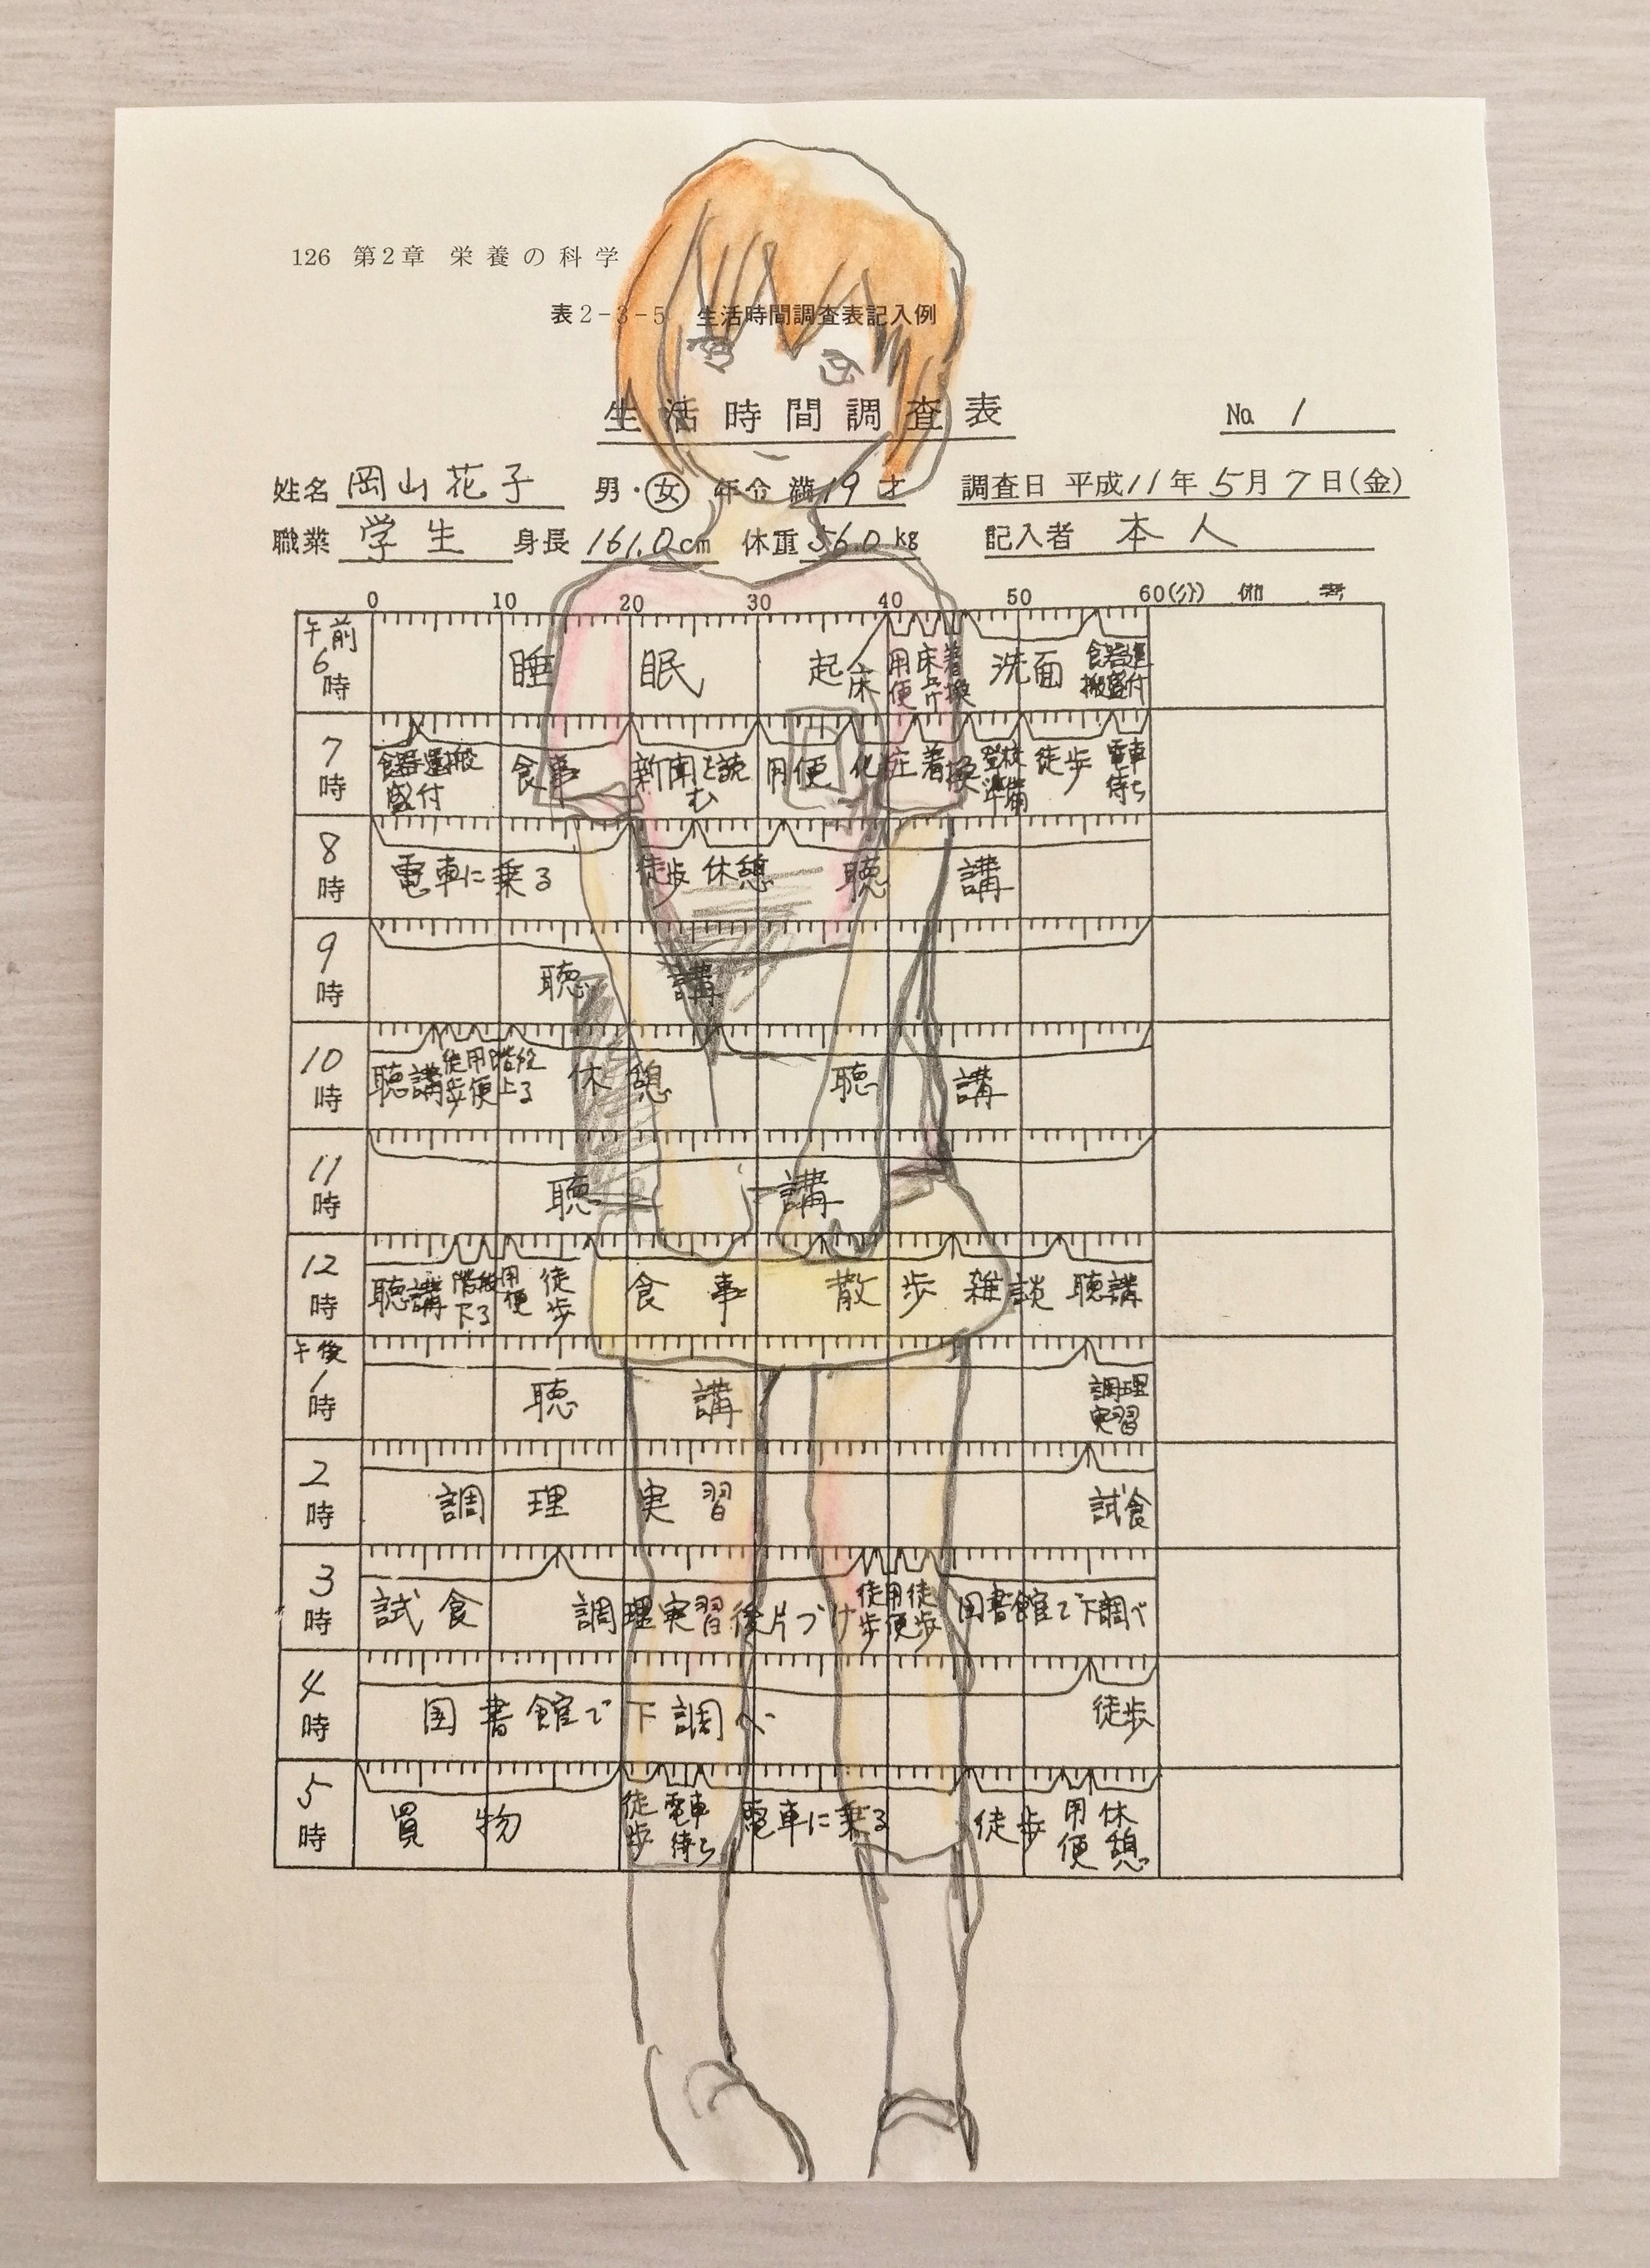 126 第2章 栄養の科学
表2-3-5 生活時間調査表記入例
生活時間調査表
No. 1
姓名 岡山花子 男・女 年令 満19才 調査日 平成11年5月7日(金)
職業 学生 身長 161.0cm 体重 56.0kg 記入者 本人
0 10 20 30 40 50 60(分) 備考
午前6時 睡眠 起床 用便 床上げ 着換 洗面 食器運搬盛付
7時 食器運搬盛付 食事 新聞を読む 用便 化粧 着換 登校準備 徒歩 電車待ち
8時 電車に乗る 徒歩 休憩 聴講
9時 聴講
10時 聴講 徒歩 用便 階段上る 休憩 聴講
11時 聴講
12時 聴講 階段下る 用便 徒歩 食事 散歩 雑談 聴講
午後1時 聴講 調理実習
2時 調理実習 試食
3時 試食 調理実習後片づけ 徒歩 用便 徒歩 図書館で下調べ
4時 図書館で下調べ 徒歩
5時 買物 徒歩 電車待ち 電車に乗る 徒歩 用便 休憩